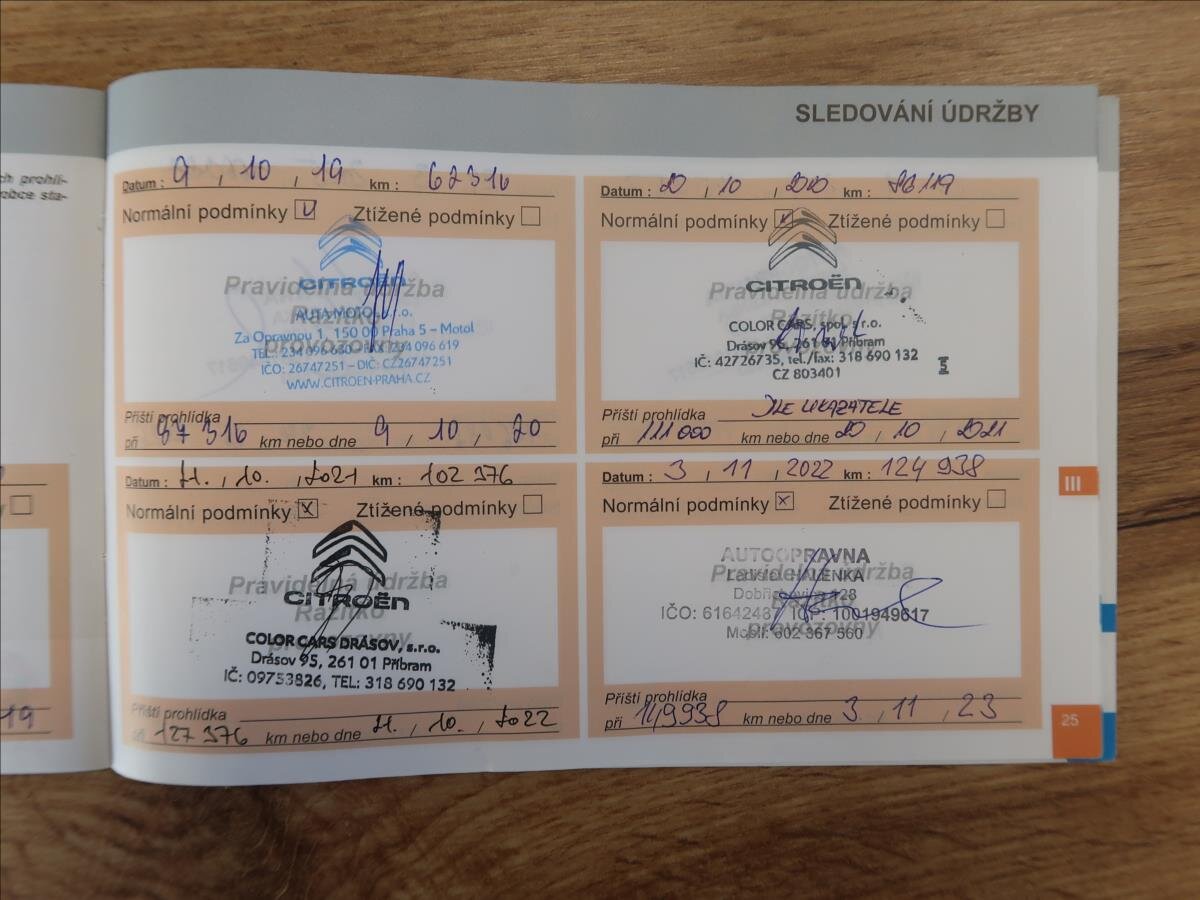 ch prohlí-
obce sta-
19
SLEDOVÁNÍ ÚDRŽBY
Datum : 9 , 10 , 19 km : 62316
Normální podmínky Ztížené podmínky
CITROËN
Pravidelná údržba
Razítko
provozovny
AUTA MOTOL s.r.o.
Za Opravnou 1, 150 00 Praha 5 – Motol
TEL.: 234 096 630 FAX 234 096 619
IČO: 26747251 – DIČ: CZ26747251
WWW.CITROEN-PRAHA.CZ
Příští prohlídka
při 87 316 km nebo dne 9 , 10 , 20
Datum : 20 , 10 , 2020 km : 86119
Normální podmínky Ztížené podmínky
CITROËN
Pravidelná údržba
Razítko
COLOR CARS, spol. s r.o.
Drásov 95, 261 01 Příbram
IČ: 42726735, tel./fax: 318 690 132
CZ 803401
Příští prohlídka DLE UKAZATELE
při 111 000 km nebo dne 20 , 10 , 2021
Datum : 21. , 10. , 2021 km : 102 376
Normální podmínky x Ztížené podmínky
Pravidelná údržba
CITROËN
Razítko
provozovny
COLOR CARS DRÁSOV, s.r.o.
Drásov 95, 261 01 Příbram
IČ: 09753826, TEL: 318 690 132
Příští prohlídka
při 127 376 km nebo dne 21. , 10. , 2022
Datum : 3 , 11 , 2022 km : 124 938
Normální podmínky x Ztížené podmínky
AUTOOPRAVNA
Pravidelná údržba
Ladislav HALENKA
Razítko
IČP: 1001949617
provozovny
Mobil: 602 367 560
Příští prohlídka
při 149938 km nebo dne 3. , 11 , 23
III
25